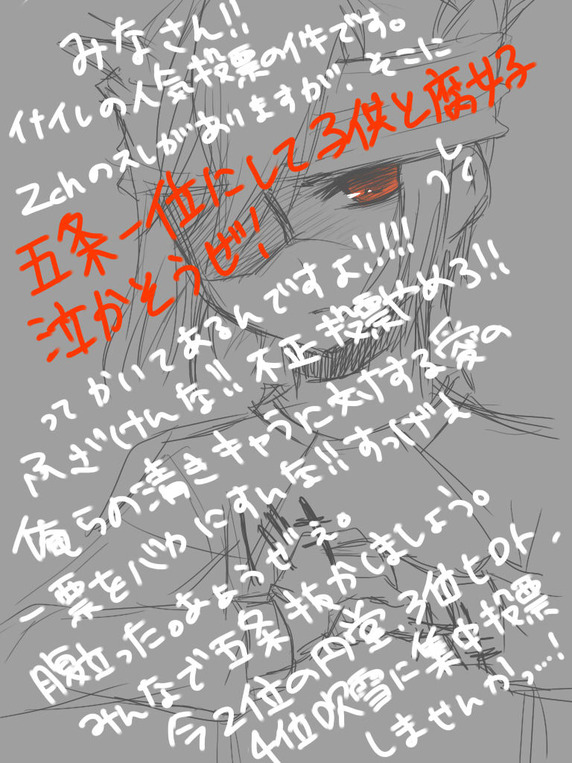 みなさん!!
イナイレの人気投票の件です。
2chのスレがありますが、そこに
五条一位にして子供と腐女子
泣かそうぜ!
ってかいてあるんですよ!!!!!
ふざけんな!!不正投票やめろ!!
俺らの清きキャラに対する愛の
一票をバカにすんな!!すっげぇ
腹立った。
みんなで五条抜かしましょう。
今2位の円堂、3位ヒロト、
4位吹雪に集中投票
しませんかっ…!